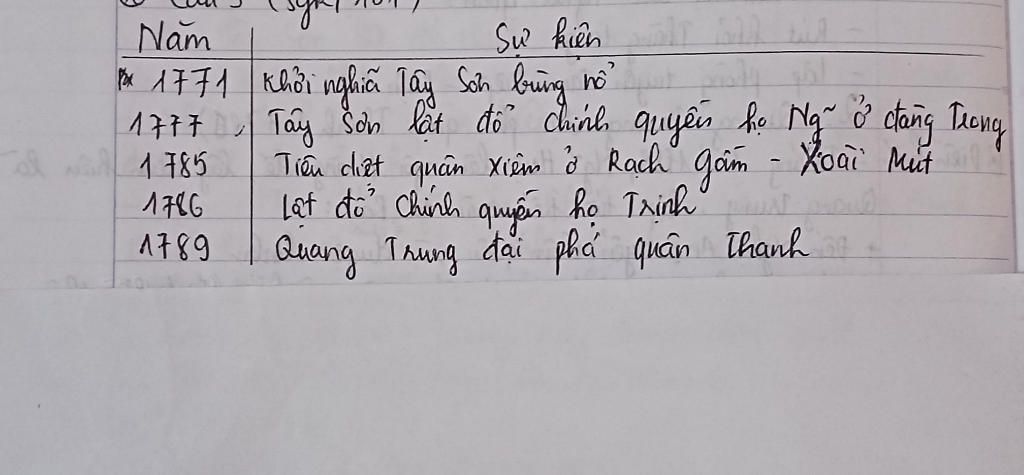 Câu 3 (sgk/
Năm Sự kiện
1771 Khởi nghĩa Tây Sơn bùng nổ
1777, Tây Sơn lật đổ chính quyền họ Ng~ ở đàng Trong
1785 Tiêu diệt quân Xiêm ở Rạch Gầm - Xoài Mút
1786 Lật đổ chính quyền họ Trịnh
1789 Quang Trung đại phá quân Thanh